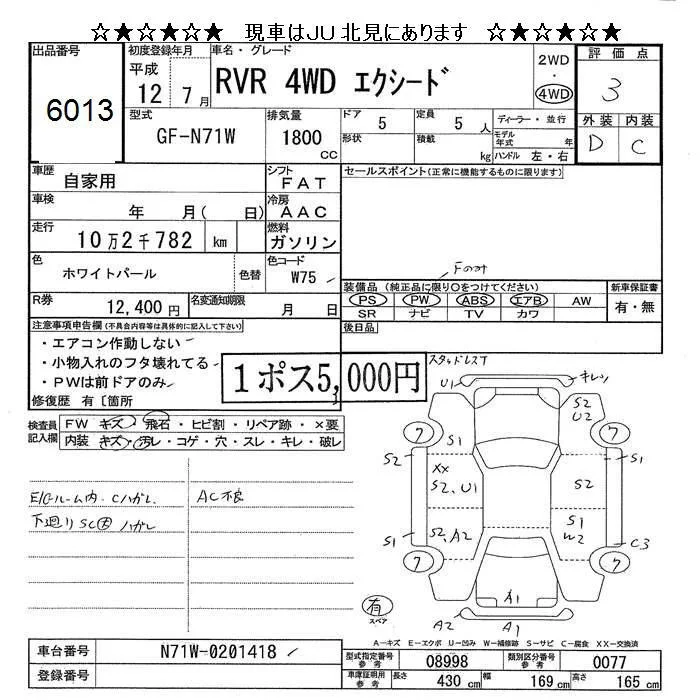 ☆★☆★☆★ 現車はJU北見にあります ☆★☆★☆★
出品番号 初度登録年月 車名・グレード 評価点
平成 12 7月 RVR 4WD エクシード 2WD ・ 4WD 3
6013
型式 排気量 ドア 定員 ディーラー・並行 外装 内装
GF-N71W 1800 CC 5 5 人 モデル年式 年 D C
形状 積載 kg ハンドル 左・右
車歴 自家用 シフト FAT セールスポイント(正常に機能するものに限ります)
車検 年 月( 日) 冷房 AAC
走行 10万2千782 km 燃料 ガソリン
色 ホワイトパール 色替 色コード W75 Fのみ
装備品(純正品に限り○をつけてください) 新車保証書
R券 12,400円 名変通知期限 月 日 PS PW ABS エアB AW 有・無
SR ナビ TV カワ
注意事項申告欄(不具合内容等は具体的に記入して下さい) 後日品
・エアコン作動しない
・小物入れのフタ壊れてる
・PWは前ドアのみ
1ポス5,000円
修復歴 有〔箇所
スタッドレスT
検査員記入欄 FW キズ・飛石・ヒビ割・リペア跡・×要
内装 キズ・汚レ・コゲ・穴・スレ・キレ・破レ
U1 キレ
S2 U2
7 7
S1 S1
S2 XX S2
S2、U1
E/Gルーム内・Cハガレ AC不良
下廻りSC大ハガレ
S2、A2 S1 W2
S1 C3
7 7
A1
有 スペア
A2 A1
A-キズ E-エクボ U-凹み W-補修跡 S-サビ C-腐食 XX-交換済
車台番号 N71W-0201418
型式指定番号 参考 08998 類別区分番号 参考 0077
登録番号 車庫証明用 参考 長さ 430 cm 幅 169 cm 高さ 165 cm